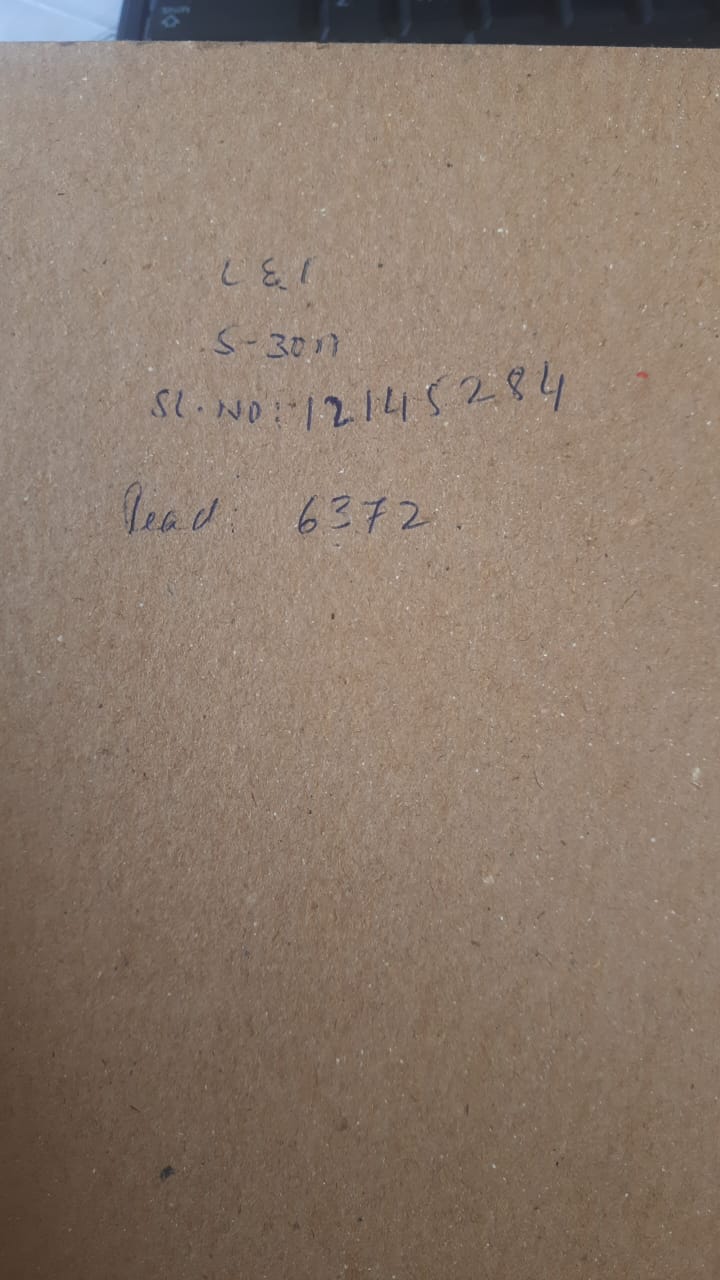 L & 1
S-30A
SL.NO: 12145284
Read: 6372.